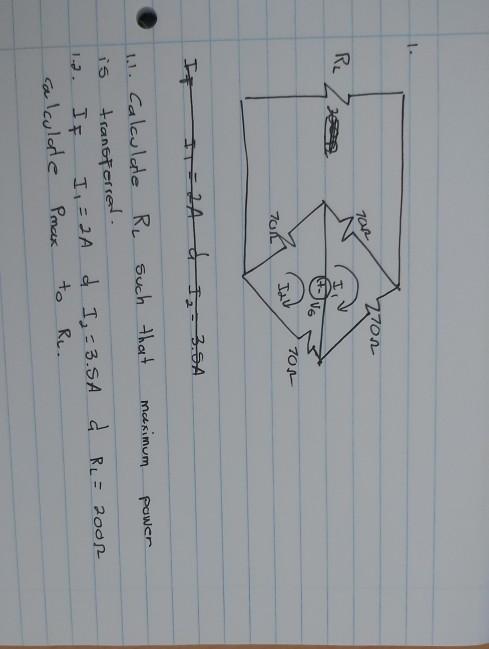 1.
RL
70Ω
70Ω
I1
+ - VS
I2
70Ω
70Ω
If I1 = 2A d I2 = 3.5A
1.1. Calculate RL such that maximum power
is transferred.
1.2. If I1 = 2A d I2 = 3.5A d RL = 200Ω
calculate Pmax to RL.